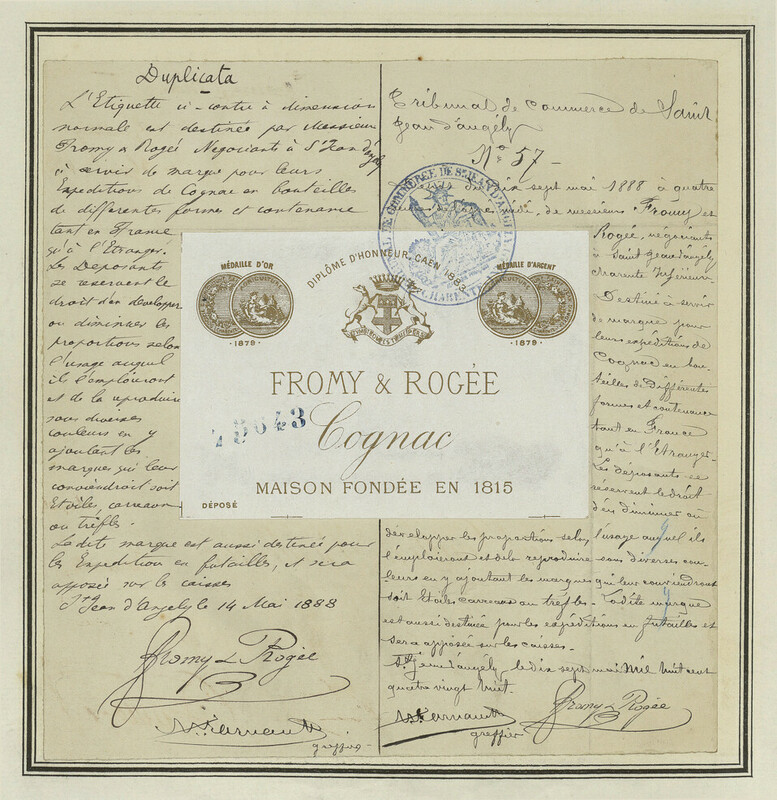 Duplicata
L'Etiquette ci-contre à dimension
normale est destinée par Messieurs
Fromy & Rogée Negociants à St Jean d'Angely
à servir de marque pour leurs
Expeditions de Cognac en bouteilles
de differentes formes et contenance
tant en France
qu'à l'Etranger.
Les Deposants
se reservent le
droit d'en developper
ou diminuer les
proportions selon
l'usage auquel
ils l'emploiront
et de la reproduire
sous diverses
couleurs en y
ajoutant les
marques qui leur
conviendront soit
Etoile, carreaux
ou trèfle.
La dite marque est aussi destinée pour
les Expedition en futailles, et sera
apposée sur les caisses
St Jean d'Angely le 14 Mai 1888
Fromy & Rogée
greffier
Tribunal de Commerce de Saint
Jean d'angély
No 57
dix sept mai 1888 à quatre
de messieurs Fromy et
Rogée, négociants
à Saint Jean d'angély
charente Inférieure.
Destiné à servir
de marque pour
leurs expéditions de
Cognac en bou-
teilles de différentes
formes et contenance
tant en France
qu'à l'Etranger.
Les déposants se
réservent le droit
d'en diminuer ou
développer les proportions selon l'usage auquel ils
l'emploieront et de la reproduire sous diverses cou-
leurs en y ajoutant les marques qui leur conviendront
soit étoiles carreaux ou trèfles. La dite marque
est aussi destinée pour les expéditions en futailles et
sera apposée sur les caisses.
St Jean d'angély le dix sept mai mil huit cent
quatre vingt huit.
Fromy & Rogée
greffier
DE COMMERCE DE ST JEAN D'ANGELY
CHARENTE
MÉDAILLE D'OR
1879
DIPLÔME D'HONNEUR, CAEN 1883
MÉDAILLE D'ARGENT
1879
FROMY & ROGÉE
Cognac
MAISON FONDÉE EN 1815
DÉPOSÉ